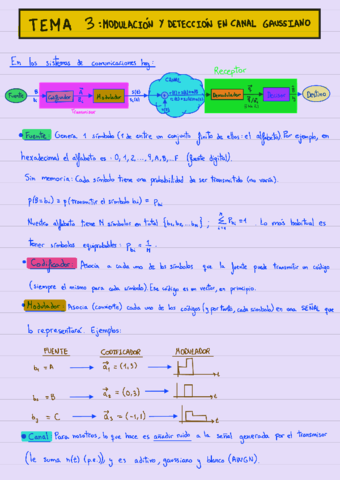 TEMA 3: MODULACIÓN Y DETECCIÓN EN CANAL GAUSSIANO
En los sistemas de comunicaciones hay:
Receptor
CANAL
Fuente
Codificador
Modulador
Demodulador
Decisor
Destino
Transmisor
Fuente Genera 1 símbolo (1 de entre un conjunto finito de ellos: el alfabeto). Por ejemplo, en
hexadecimal el alfabeto es: 0, 1, 2, ..., 9, A, B, ... F (fuente digital).
Sin memoria: Cada símbolo tiene una probabilidad de ser transmitido (no varía).
Nuestro alfabeto tiene M símbolos en total {b₁, b₂, ... bₘ} ; Lo más habitual es
tener símbolos equiprobables:
Codificador: Asocia a cada uno de los símbolos que la fuente puede transmitir un código
(siempre el mismo para cada símbolo). Ese código es un vector, en principio.
Modulador Asocia (convierte) cada uno de los códigos (y por tanto, cada símbolo) en una SEÑAL que
lo representará. Ejemplos:
FUENTE CODIFICADOR MODULADOR
b₁ = A a₁ = (1,3) t
b₂ = B a₂ = (0,3) t
b₃ = C a₃ = (-1,1) t
Canal Para nosotros, lo que hace es añadir ruido a la señal generada por el transmisor
(le suma n(t) (p.e.)), y es aditivo, gaussiano y blanco (AWGN).